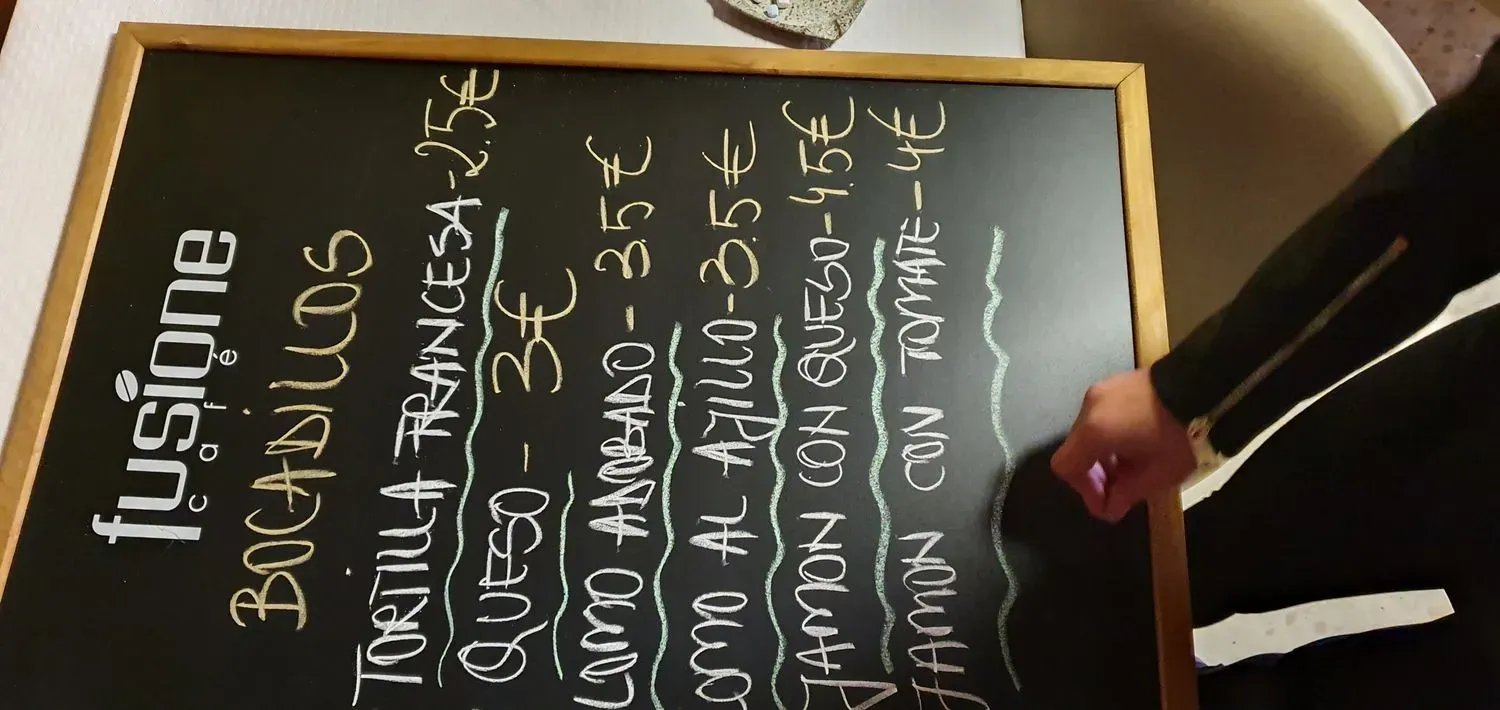 fusione
café
BOCADILLOS
TORTILLA FRANCESA-2.5€
QUESO - 3€
LOMO ADOBADO - 3.5€
LOMO AL AJILLO-3.5€
JAMON CON QUESO-4.5€
JAMON CON TOMATE-4€